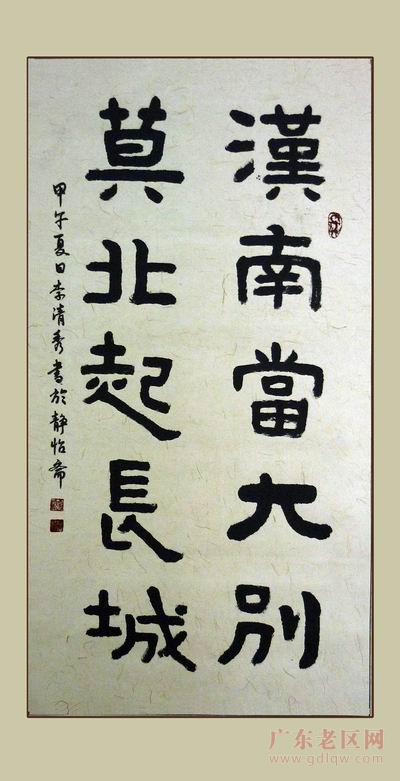 漢南當大别
莫北起長城
甲午夏日李清秀書於靜怡齋
广东老区网
www.gdlqw.com